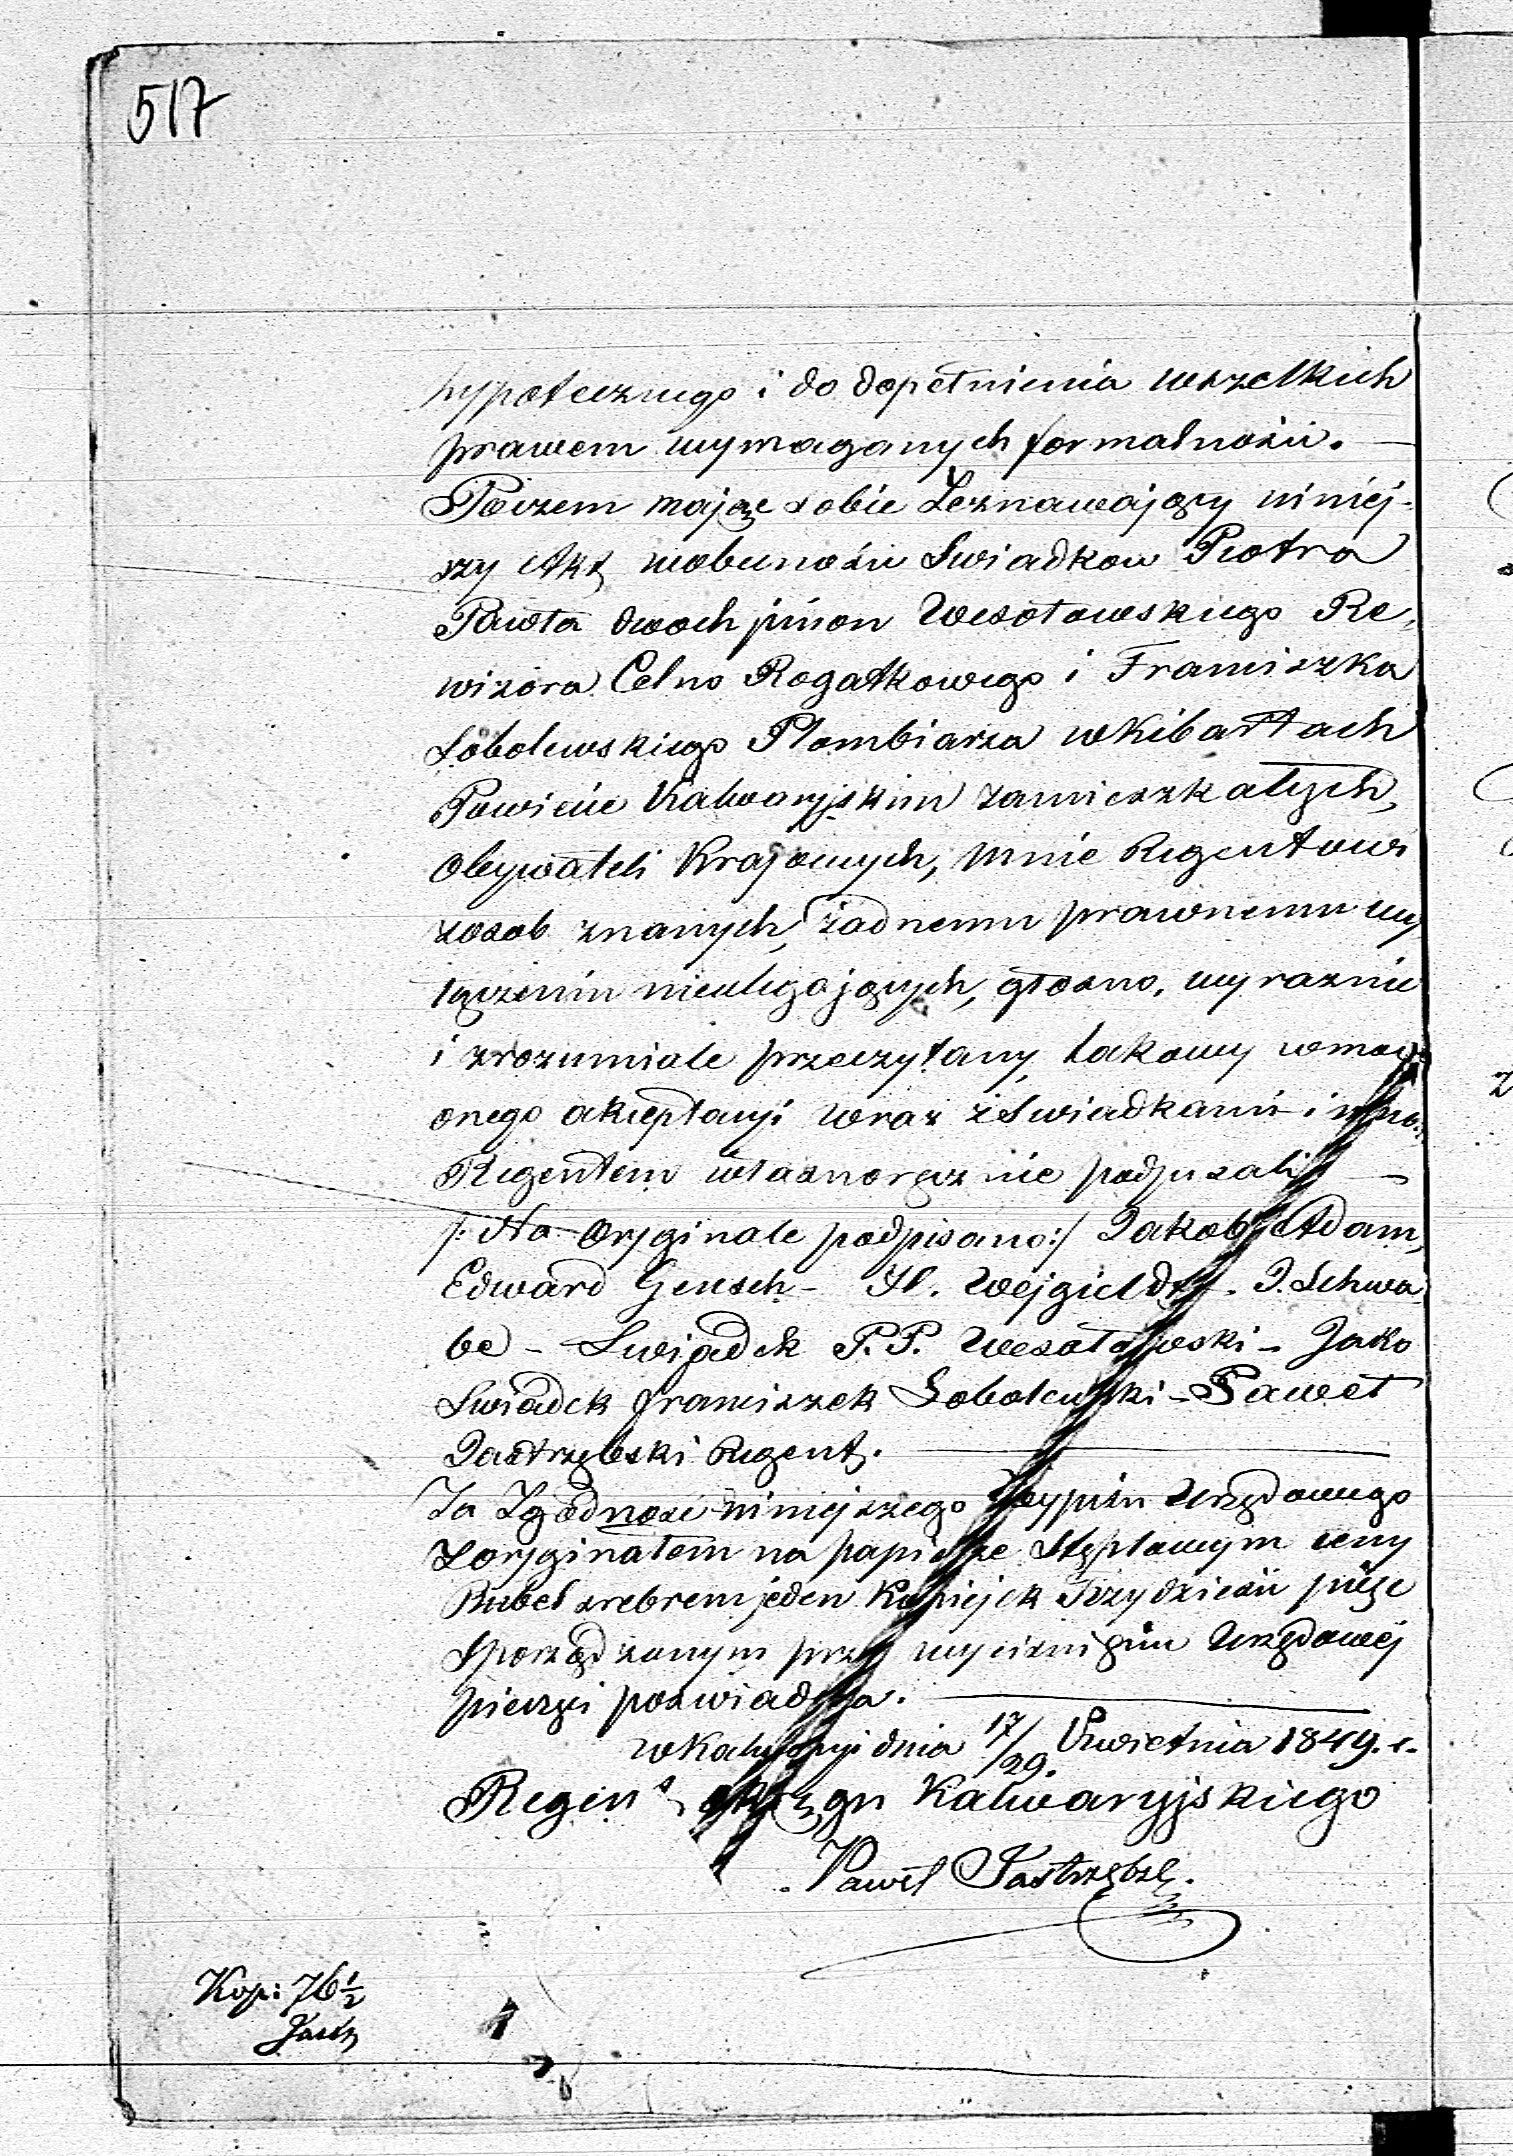 517
hypotecznego i do dopełnienia wszelkich
prawem wymaganych formalności.
Poczem mając sobie Zeznawający niniej-
szy Akt wobecności Swiadkow Piotra
Pawła dwoch imion Wesołowskiego Re-
wizora Celno Rogatkowego i Franciszka
Sobolewskiego Plombiarza w Kibartach
Powiecie Kalwaryjskim zamieszkałych,
Obywateli Krajowych, mnie Regentowi
zosob znanych, żadnemu prawnemu wy-
łączeniu nieulegających, głosno, wyraznie
i zrozumiale przeczytany, takowy w moc
onego akceptacyi wraz z Swiadkami i mną
Regentem własnoręcznie podpisali —
/: Na Oryginale podpisano:/ Jakob Adam,
Edward Gensch - Wejgieldt. J. Schwa-
be - Swiadek P. P. Wesołowski - Jako
Swiadek Franciszek Sobolewski - Paweł
Jastrzębski Regent. —
Za Zgodność niniejszego Wypisu Urzędowego
Z oryginałem na papierze Stęplowym ceny
Rubel srebrem jeden Kopiejek Trzydzieści pięć
Sporządzonym przy wyciśnięciu Urzędowéj
pieczęci poswiadcza. —
w Kalwaryi dnia 17/29. Kwietnia 1849. r.
Regent okręgu Kalwaryjskiego
Paweł Jastrzębski.
Kop: 76 1/2
Jast